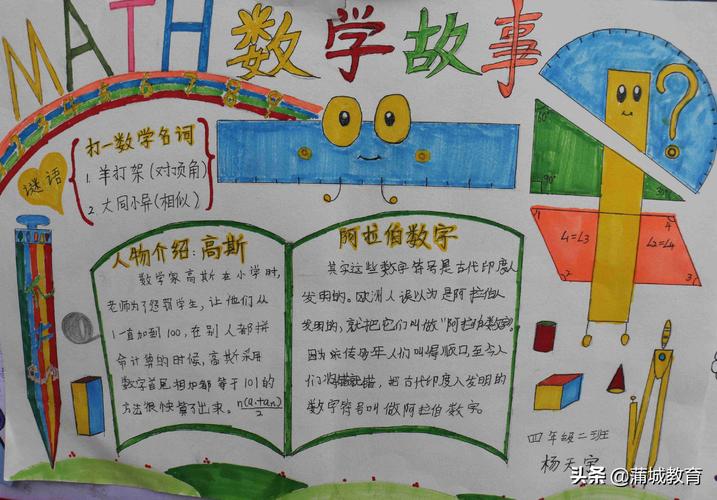 MATH 数学故事
1 2 3 4 5 6 7 8 9
谜语
打一数学名词
1. 羊打架(对顶角)
2. 大同小异(相似)
人物介绍:高斯
数学家高斯在小学时,
老师为了惩罚学生,让他们从
1一直加到100,在别人都拼
命计算的时候,高斯采用
数字首尾相加都等于101的
方法很快算了出来。n(a₁+aₙ)/2
阿拉伯数字
其实这些数字符号是古代印度人
发明的。欧洲人误以为是阿拉伯人
发明的,就把它们叫做“阿拉伯数字”。
因为流传多年人们叫得顺口,至今人
们将错就错,把古代印度人发明的
数字符号叫做阿拉伯数字。
60°
90°
30°
?
1
4
∠1=∠3
∠2=∠4
2
3
四年级二班
杨天宇
头条 @蒲城教育